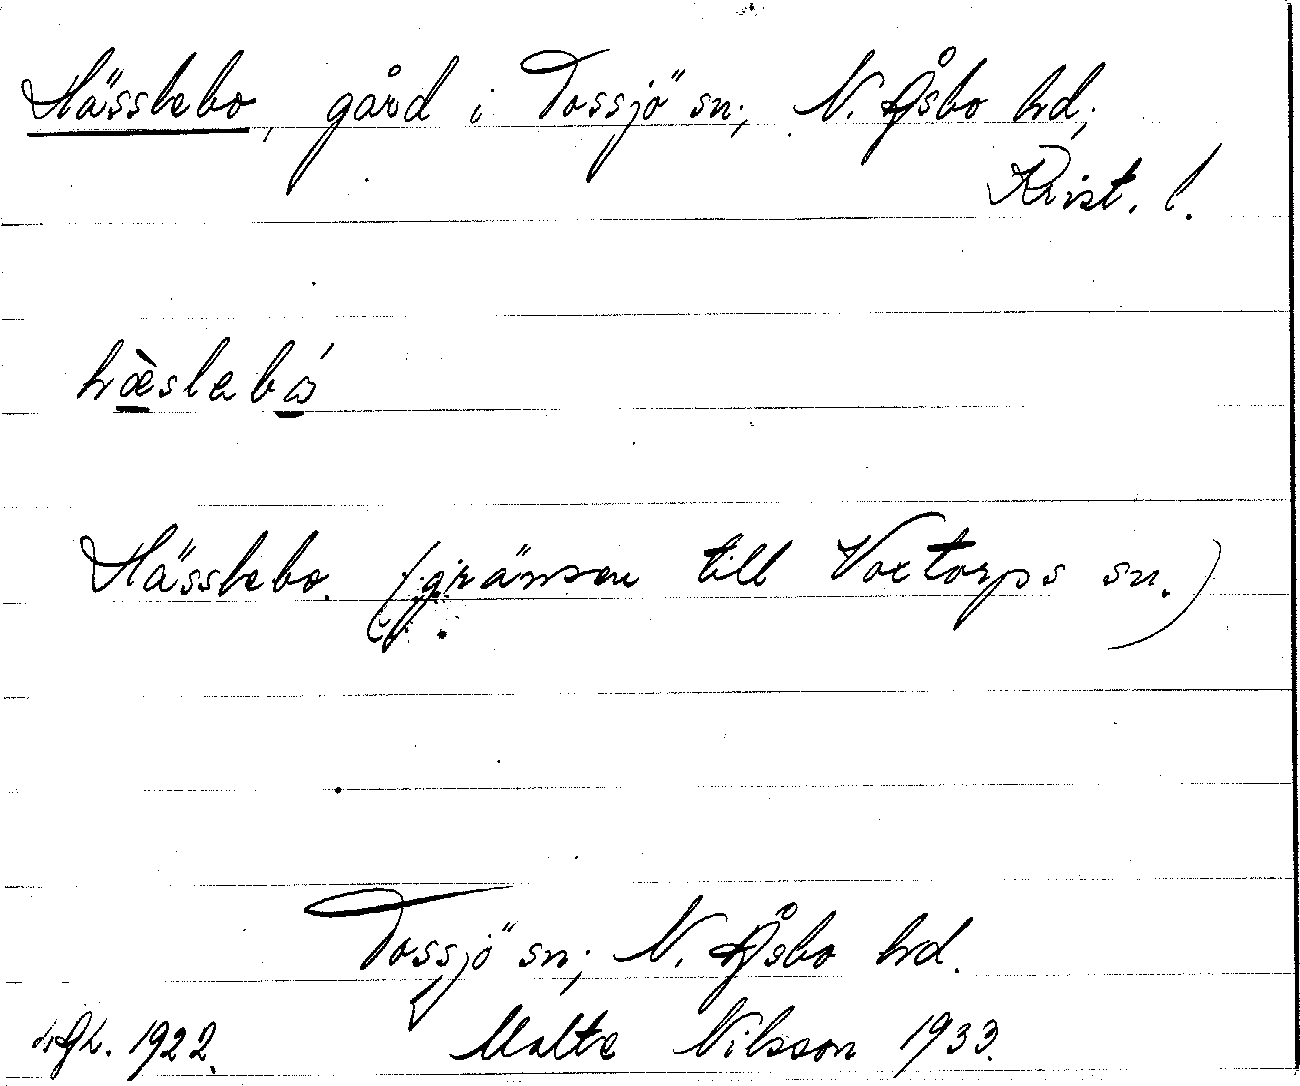 Hässlebo, gård i Tossjö sn; N. Åsbo hd;
Krist. l.
hæ̀slabó
Hässlebo. (gränsen till Voxtorps sn.)
Tossjö sn; N. Åsbo hd.
1922. Malte Nilsson 1933.